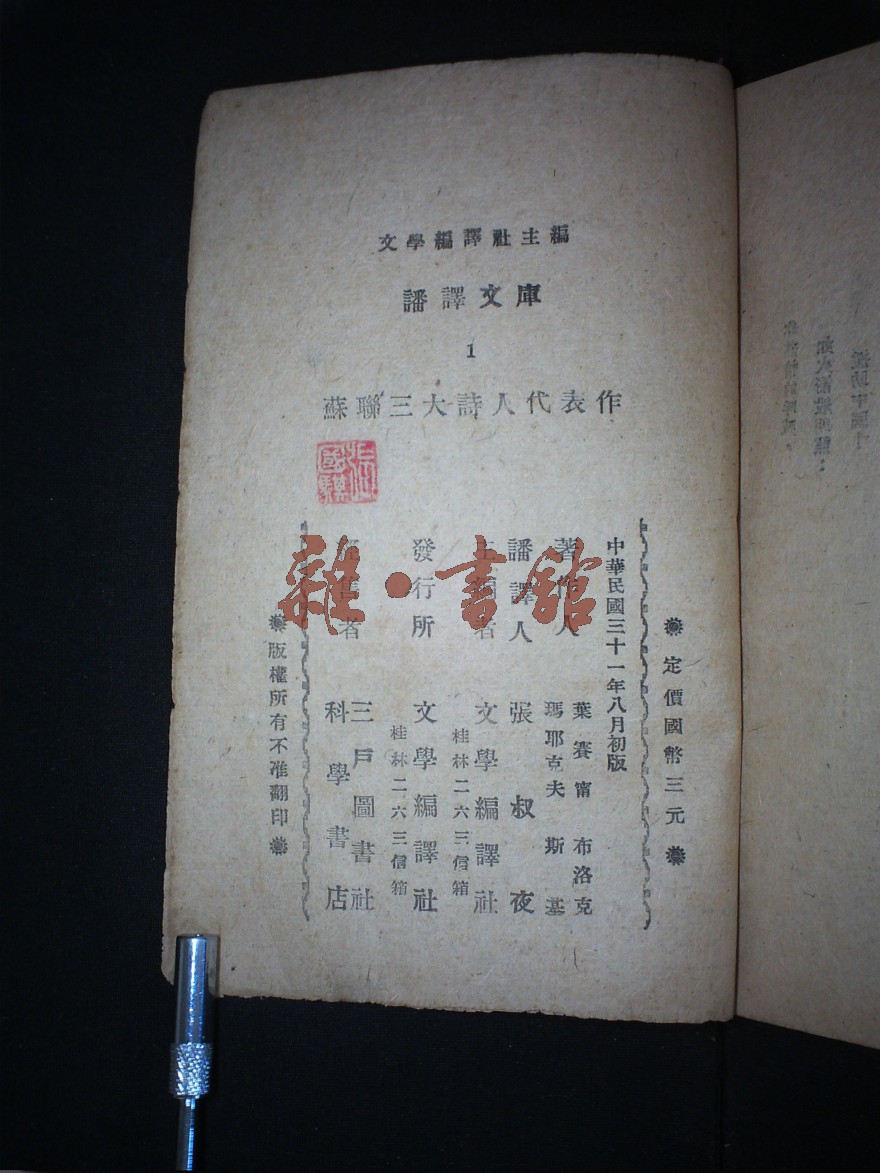 文學編譯社主編
譒譯文庫
1
蘇聯三大詩人代表作
定價國幣三元
中華民國三十一年八月初版
著作人 葉賽甯 布洛克
瑪耶克夫斯基
譒譯人 張叔夜
主編者 文學編譯社
桂林二六三信箱
發行所 文學編譯社
桂林二六三信箱
經售者 三戶圖書社
科學書店
版權所有不准翻印
雜·書館